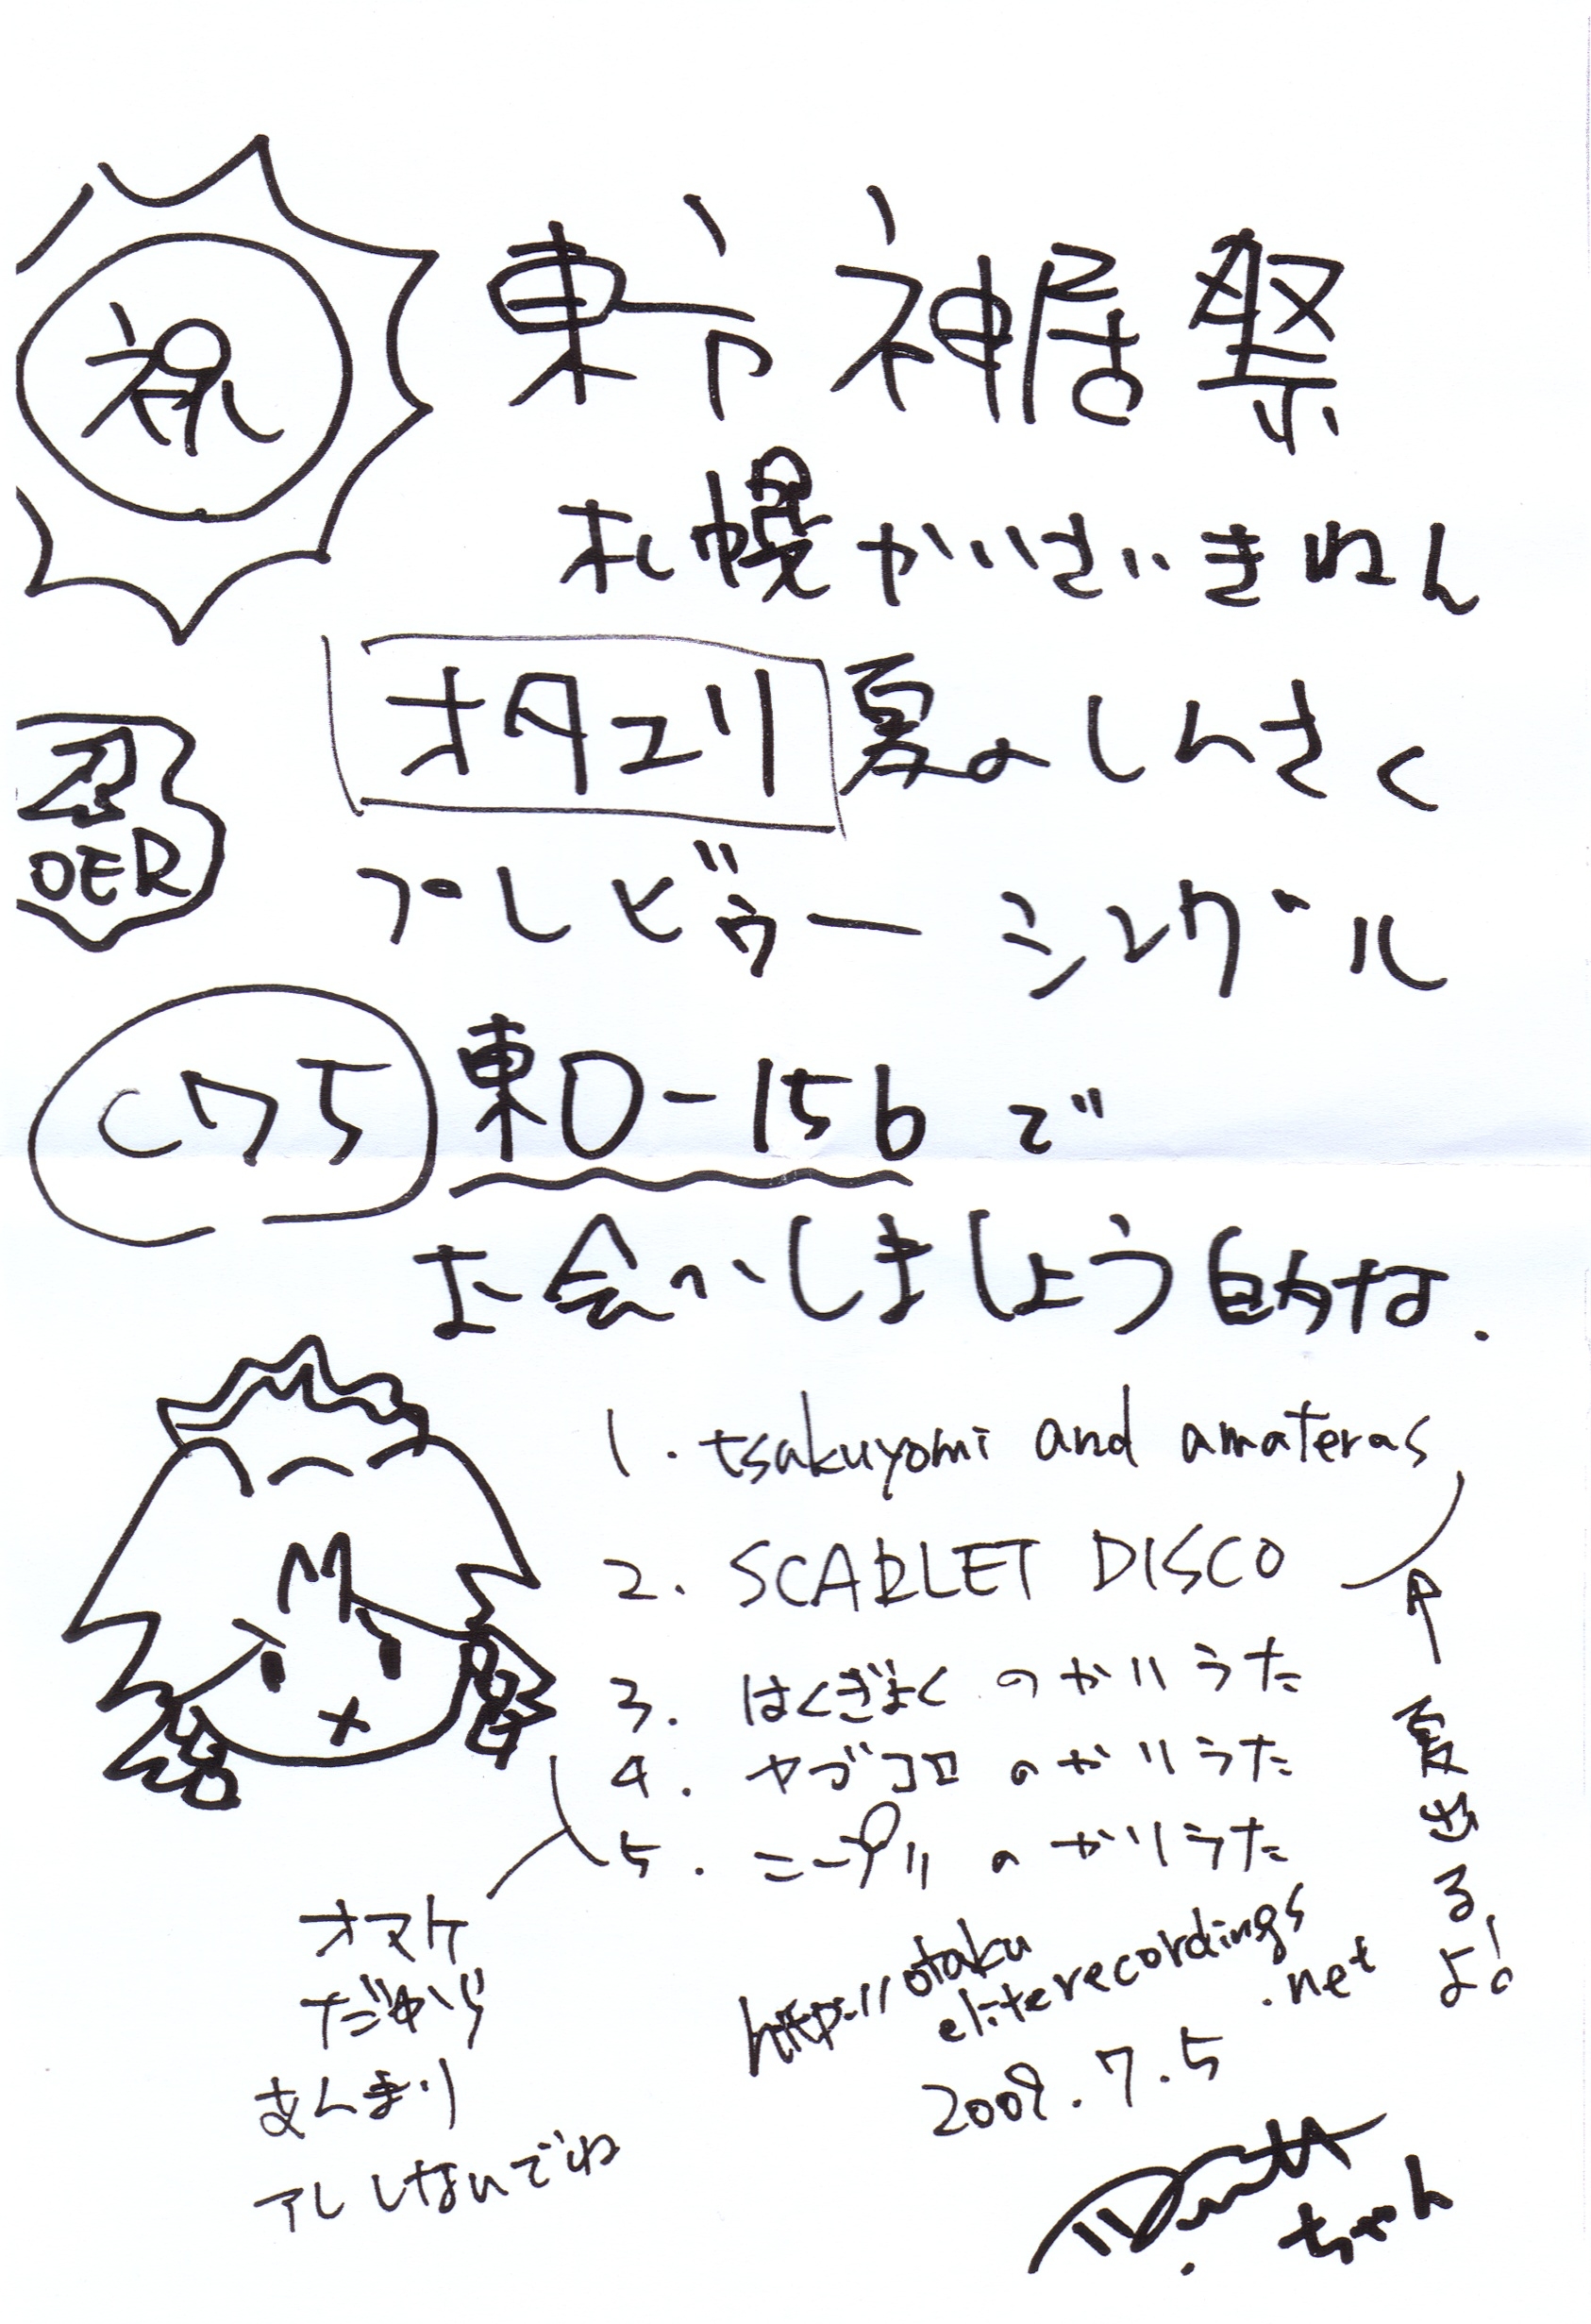 祝
東方神居祭
札幌かいさいきねん
オタエリ 夏のしんさく
忍
OER
プレビゥー シングル
C75 東O-15bで
お会いしましょう的な.
1. tsukuyomi and amateras
2. SCARLET DISCO
3. はくぎょく のかりうた
4. ヤゴコロ のかりうた
5. ニーデリ のかりうた
夏出るよ!
オマケ
だから
あんまり
アレしないでね
http://otaku
eliterecordings
.net
2009.7.5
ちゃん